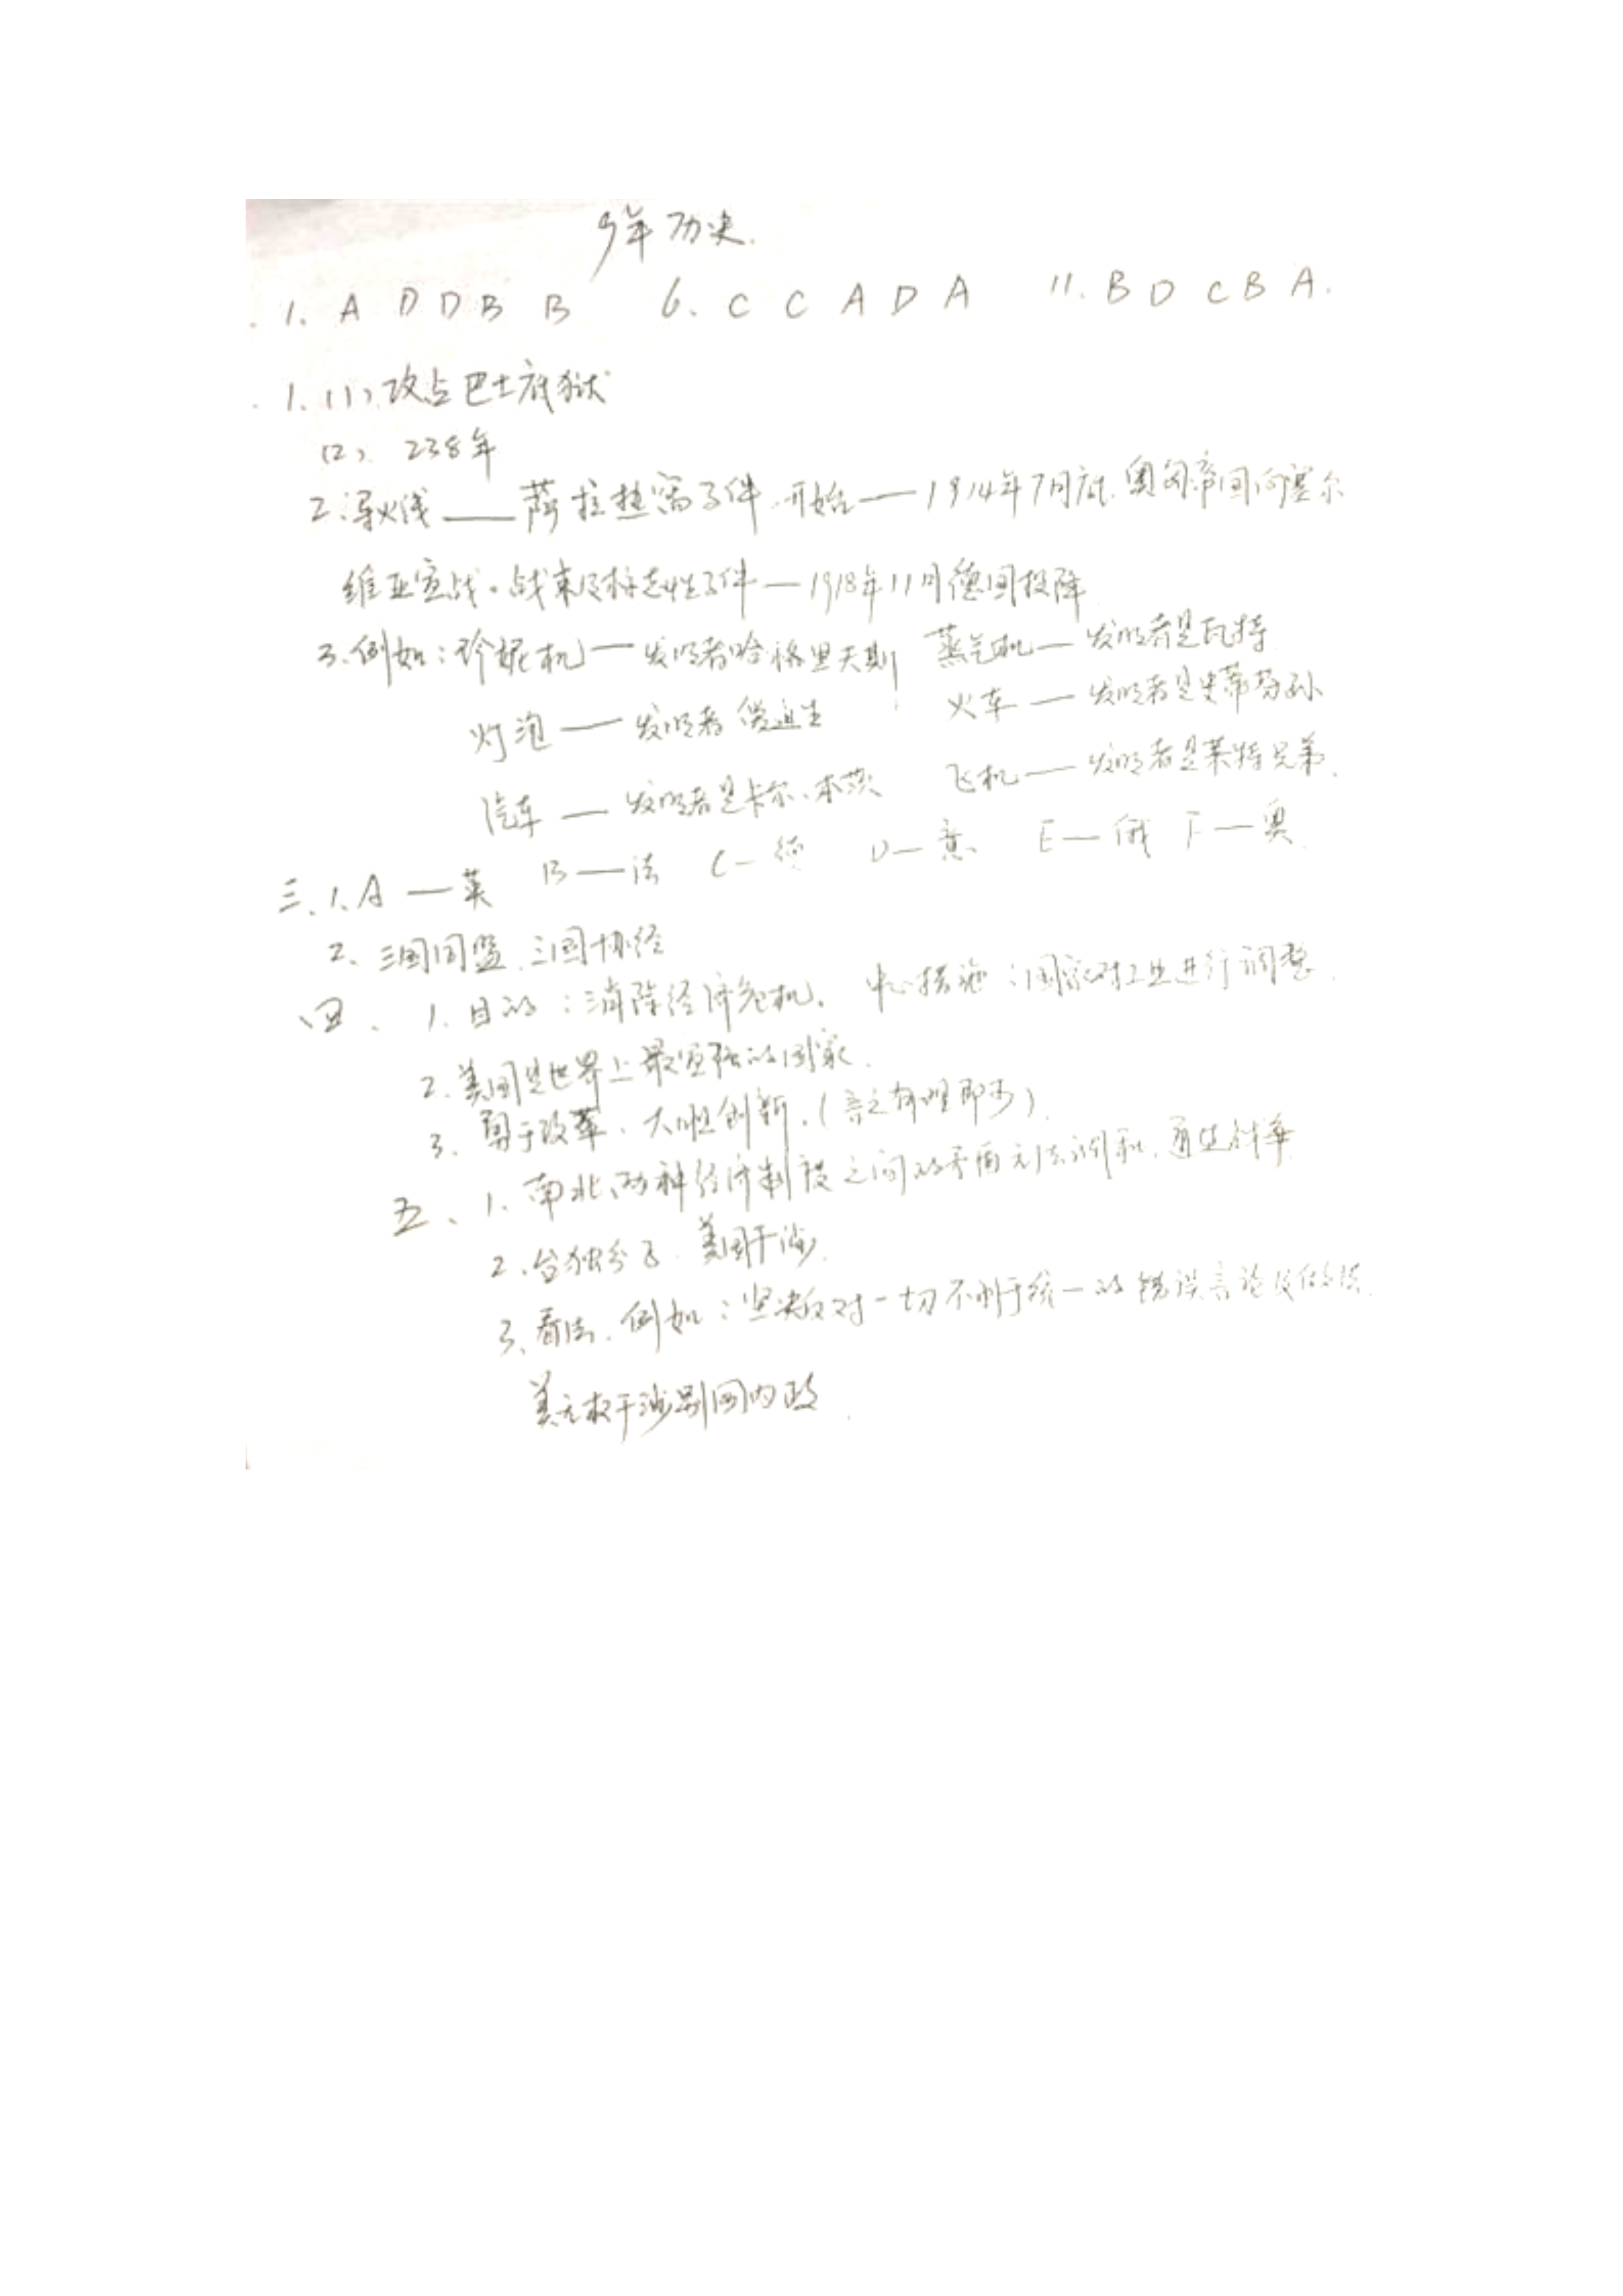 9年历史.
1. A D D B B 6. C C A D A 11. B D C B A.
1. (1). 攻占巴士底狱
(2). 238年
2. 导火线——萨拉热窝事件. 开始——1914年7月底. 奥匈帝国向塞尔
维亚宣战。战束及标志性事件—1918年11月德国投降
3. 例如：珍妮机—发明者哈格里夫斯 蒸气机—发明者是瓦特
灯泡——发明者爱迪生 火车—发明者是史蒂芬孙
汽车—发明者是卡尔.本茨 飞机——发明者是莱特兄弟.
三. 1. A—英 B—法 C—德 D—意 E—俄 F—奥
2. 三国同盟. 三国协约
四、1. 目的：消除经济危机. 中心措施：国家对工业进行调整.
2. 美国是世界上最富强的国家.
3. 勇于改革、大胆创新.(言之有理即可).
五、1. 南北两种经济制度之间的矛盾无法调和. 通过战争
2. 台独分子. 美国干涉.
3. 看法. 例如：坚决反对一切不利于统一的错误言论及做法.
美无权干涉别国内政.